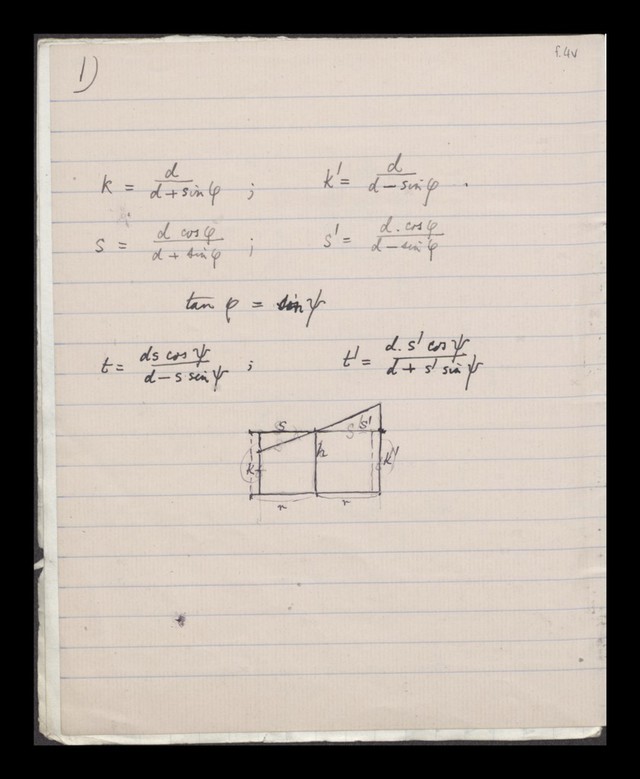 f.4v
1)
k = d / d + sin φ ; k' = d / d − sin φ .
s = d cos φ / d + sin φ ; s' = d. cos φ / d − sin φ
tan φ = sin ψ
t = ds cos ψ / d − s sin ψ ; t' = d. s' cos ψ / d + s' sin ψ
s s'
k h k'
r r